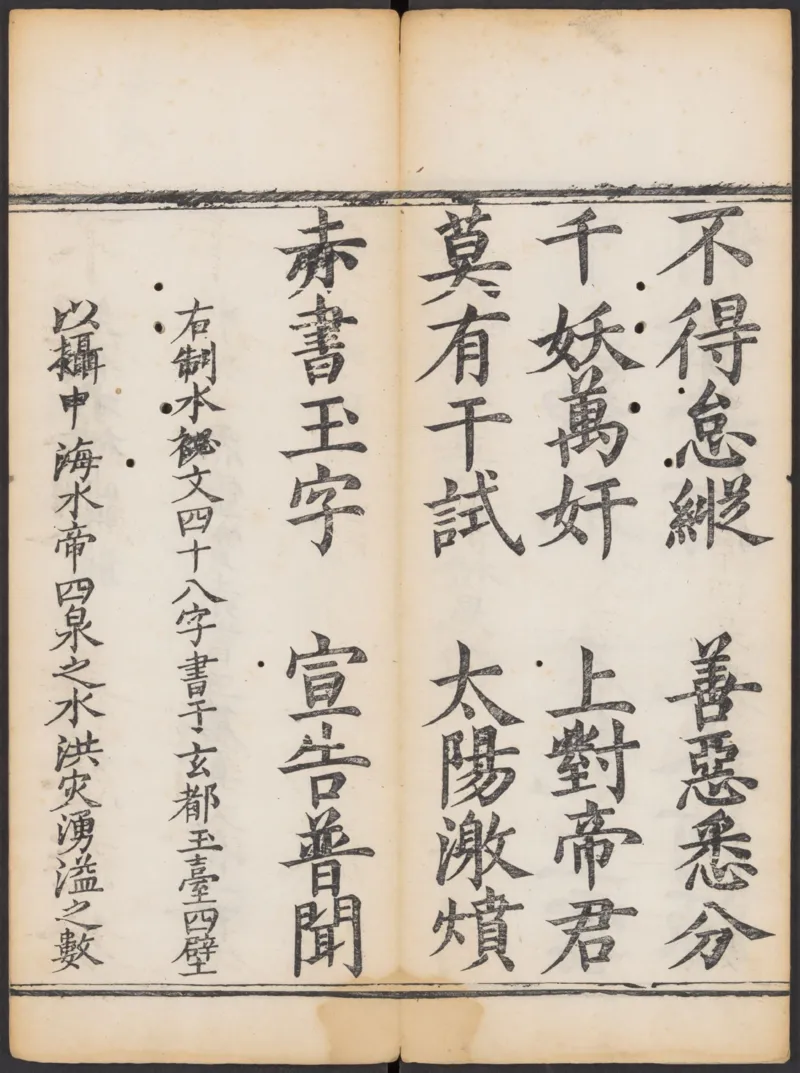 不得怠縱　善惡悉分
千妖萬奸　上對帝君
莫有干試　太陽激憤
赤書玉字　宣告普聞
右制水祕文四十八字書于玄都玉臺四壁
以攝申海水帝四泉之水洪灾湧溢之數